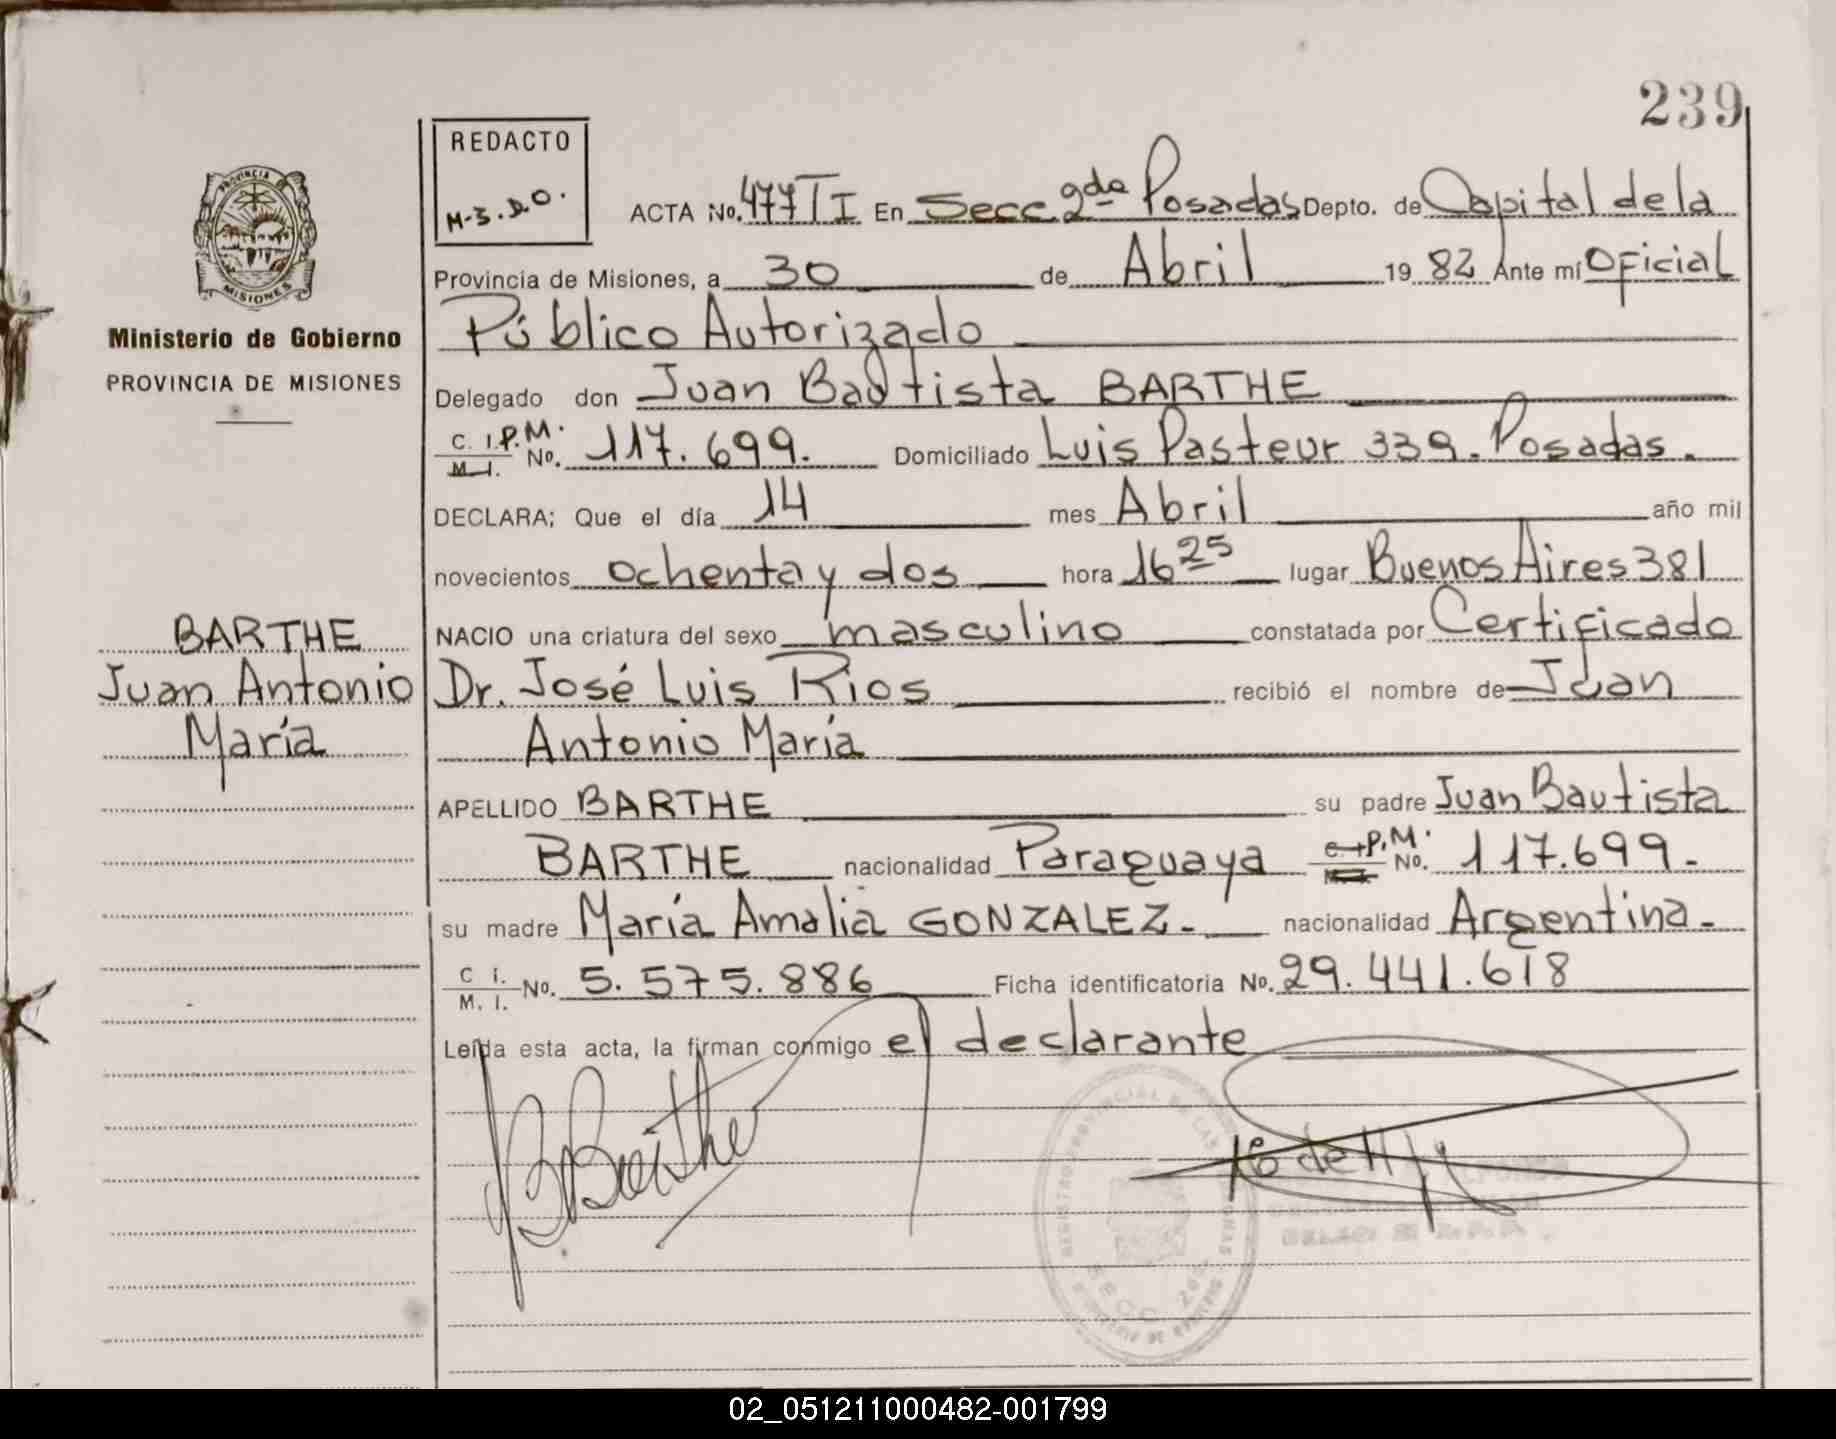 239
REDACTO
M-3.D.O.
PROVINCIA DE
MISIONES
Ministerio de Gobierno
PROVINCIA DE MISIONES
BARTHE
Juan Antonio
María
ACTA No. 477 T I En Secc 2da Posadas Depto. de Capital de la
Provincia de Misiones, a 30 de Abril 19 82 Ante mí Oficial
Público Autorizado
Delegado don Juan Bautista BARTHE
C. I.P.M. M.I. No. 117.699. Domiciliado Luis Pasteur 339. Posadas.
DECLARA; Que el día 14 mes Abril año mil
novecientos ochenta y dos hora 16 25 lugar Buenos Aires 381
NACIO una criatura del sexo masculino constatada por Certificado
Dr. José Luis Rios recibió el nombre de Juan
Antonio María
APELLIDO BARTHE su padre Juan Bautista
BARTHE nacionalidad Paraguaya P.M. No. 117.699.-
su madre María Amalia GONZALEZ.- nacionalidad Argentina.-
C I. M. I. No. 5.575.886 Ficha identificatoria No. 29.441.618
Leída esta acta, la firman conmigo el declarante
JBBarthe
REGISTRO PROVINCIAL DE LAS PERSONAS
SECC. 2da
02_051211000482-001799